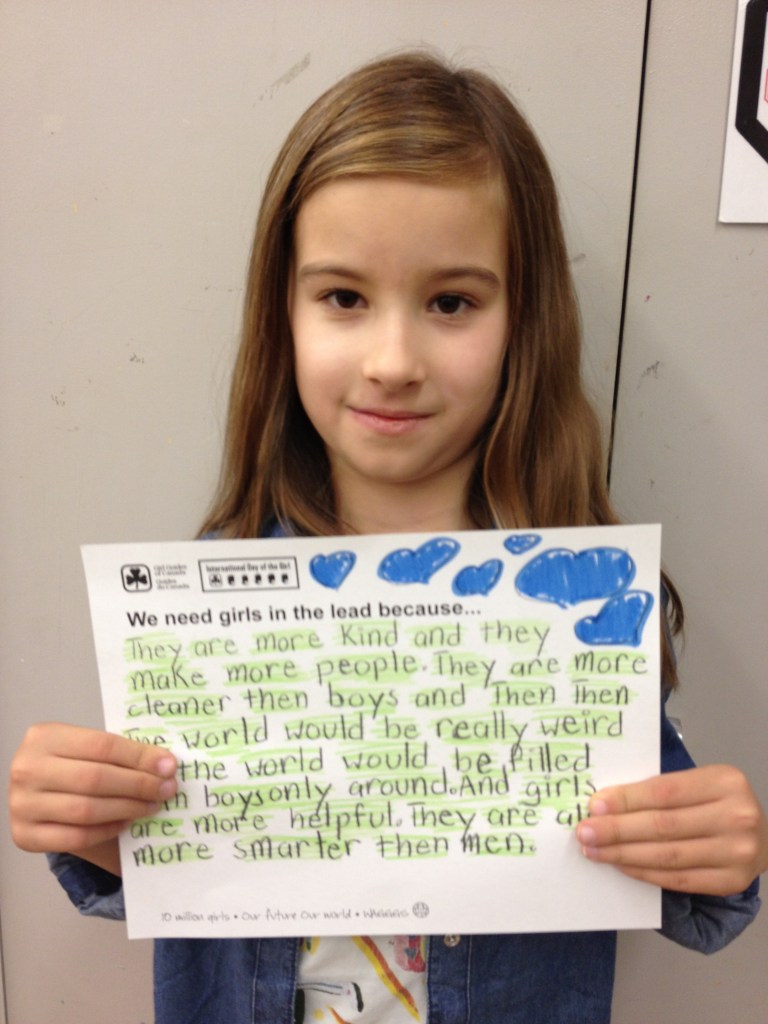 Girl Guides of Canada
Guides du Canada
International Day of the Girl
We need girls in the lead because...
They are more Kind and they
make more people. They are more
cleaner then boys and Then Then
The world would be really weird
the world would be filled
boys only around. And girls
are more helpful. They are
more smarter then men.
10 million girls • Our future Our world • WAGGGS